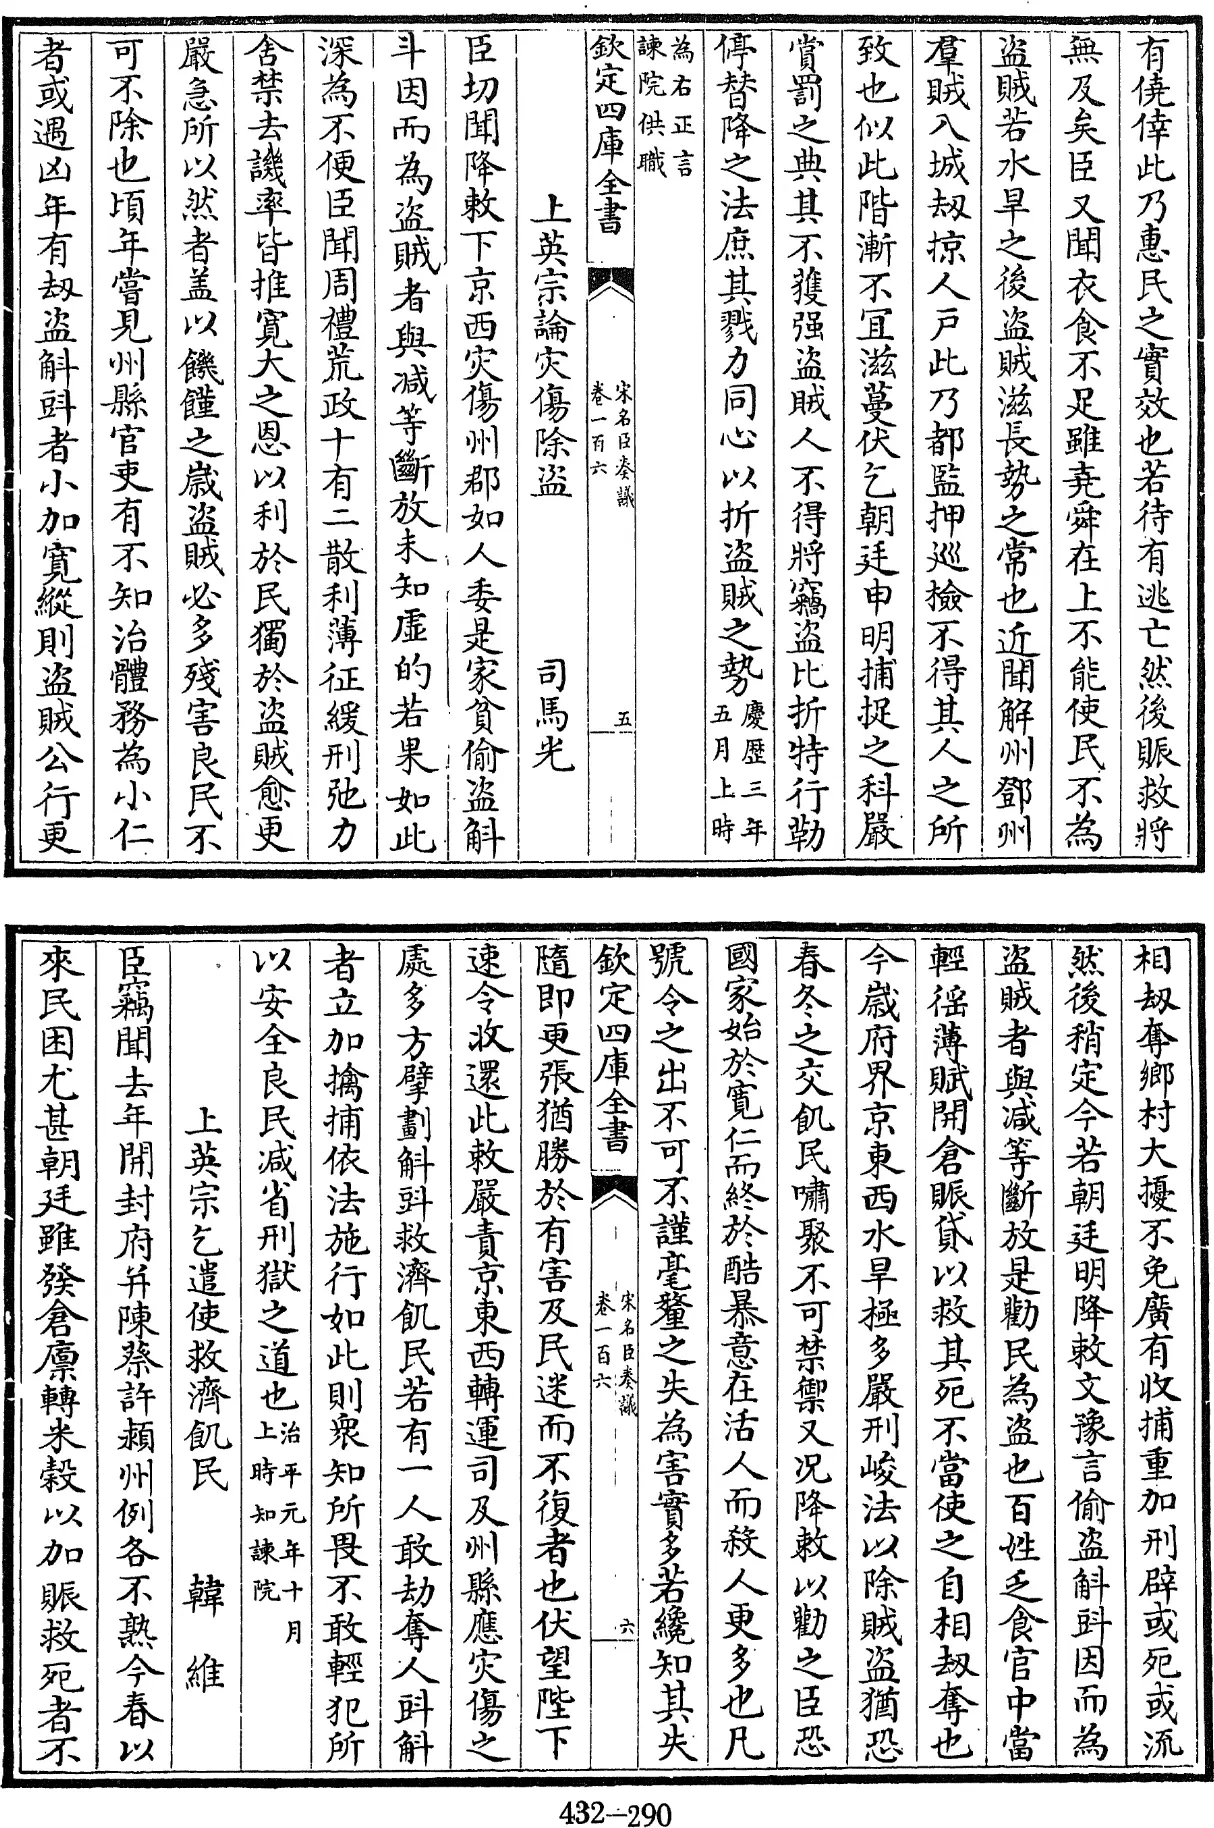 有僥倖此乃惠民之實效也若待有逃亡然後賑救將
無及矣臣又聞衣食不足雖堯舜在上不能使民不為
盜賊若水旱之後盜賊滋長勢之常也近聞解州鄧州
羣賊入城刼掠人戸此乃都監押巡檢不得其人之所
致也似此階漸不冝滋蔓伏乞朝廷申明捕捉之科嚴
賞罰之典其不獲强盜賊人不得將竊盜比折特行勒
停替降之法庶其戮力同心以折盜賊之勢慶歴三年五月上時
為右正言諫院供職
欽定四庫全書
宋名臣奏議
卷一百六
五
上英宗論灾傷除盜 司馬光
臣切聞降敕下京西灾傷州郡如人委是家貧偷盜斛
斗因而為盜賊者與减等斷放未知虛的若果如此
深為不便臣聞周禮荒政十有二散利薄征緩刑弛力
舍禁去譏率皆推寛大之恩以利於民獨於盜賊愈更
嚴急所以然者盖以饑饉之歲盜賊必多殘害良民不
可不除也頃年嘗見州縣官吏有不知治體務為小仁
者或遇凶年有刼盜斛㪷者小加寛縱則盜賊公行更
相刼奪鄉村大擾不免廣有收捕重加刑辟或死或流
然後稍定今若朝廷明降敕文豫言偷盜斛㪷因而為
盜賊者與减等斷放是勸民為盜也百姓乏食官中當
輕徭薄賦開倉賑貸以救其死不當使之自相刼奪也
今歲府界京東西水旱極多嚴刑峻法以除賊盜猶恐
春冬之交飢民嘯聚不可禁禦又况降敕以勸之臣恐
國家始於寛仁而終於酷暴意在活人而殺人更多也凡
號令之出不可不謹毫釐之失為害實多若纔知其失
欽定四庫全書
宋名臣奏議
卷一百六
六
隨即更張猶勝於有害及民迷而不復者也伏望陛下
速令收還此敕嚴責京東西轉運司及州縣應灾傷之
處多方擘劃斛㪷救濟飢民若有一人敢劫奪人㪷斛
者立加擒捕依法施行如此則衆知所畏不敢輕犯所
以安全良民减省刑獄之道也治平元年十月上時知諫院
上英宗乞遣使救濟飢民 韓維
臣竊聞去年開封府并陳蔡許潁州例各不熟今春以
來民困尤甚朝廷雖發倉廩轉米穀以加賑救死者不
432—290